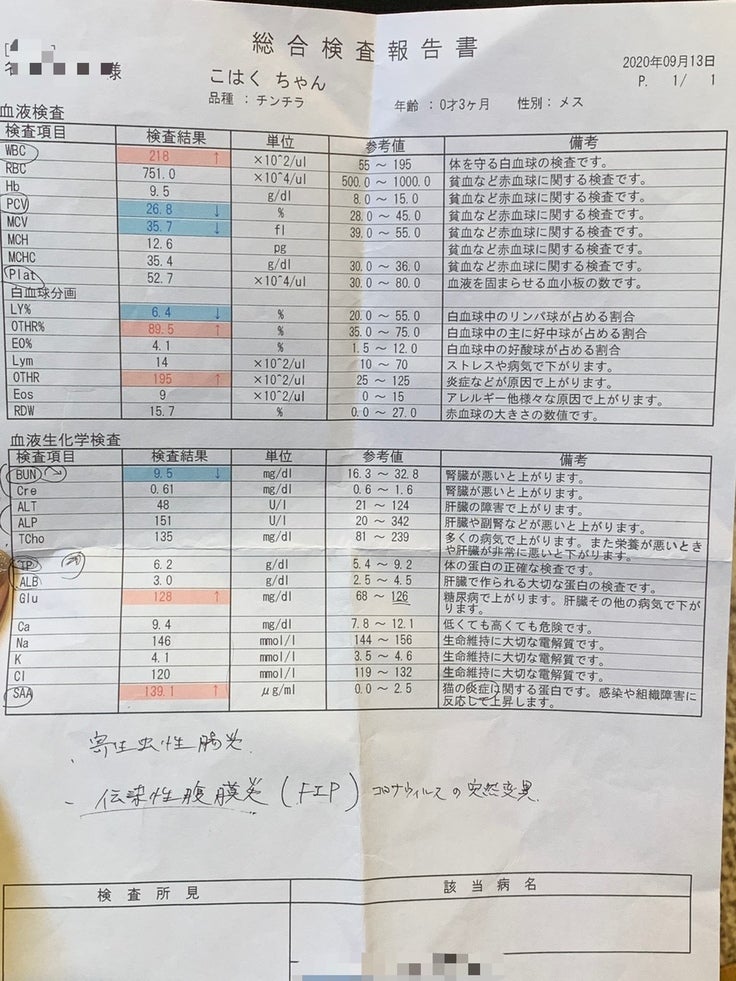 総合検査報告書
2020年09月13日
P. 1/ 1
様
こはく ちゃん
品種 : チンチラ
年齢 : 0才3ヶ月 性別 : メス
血液検査
検査項目 検査結果 単位 参考値 備考
WBC 218 ↑ ×10^2/ul 55 ～ 195 体を守る白血球の検査です。
RBC 751.0 ×10^4/ul 500.0 ～ 1000.0 貧血など赤血球に関する検査です。
Hb 9.5 g/dl 8.0 ～ 15.0 貧血など赤血球に関する検査です。
PCV 26.8 ↓ % 28.0 ～ 45.0 貧血など赤血球に関する検査です。
MCV 35.7 ↓ fl 39.0 ～ 55.0 貧血など赤血球に関する検査です。
MCH 12.6 pg 貧血など赤血球に関する検査です。
MCHC 35.4 g/dl 30.0 ～ 36.0 貧血など赤血球に関する検査です。
Plat 52.7 ×10^4/ul 30.0 ～ 80.0 血液を固まらせる血小板の数です。
白血球分画
LY% 6.4 ↓ % 20.0 ～ 55.0 白血球中のリンパ球が占める割合
OTHR% 89.5 ↑ % 35.0 ～ 75.0 白血球中の主に好中球が占める割合
EO% 4.1 % 1.5 ～ 12.0 白血球中の好酸球が占める割合
Lym 14 ×10^2/ul 10 ～ 70 ストレスや病気で下がります。
OTHR 195 ↑ ×10^2/ul 25 ～ 125 炎症などが原因で上がります。
Eos 9 ×10^2/ul 0 ～ 15 アレルギー他様々な原因で上がります。
RDW 15.7 % 0.0 ～ 27.0 赤血球の大きさの数値です。
血液生化学検査
検査項目 検査結果 単位 参考値 備考
BUN 9.5 ↓ mg/dl 16.3 ～ 32.8 腎臓が悪いと上がります。
Cre 0.61 mg/dl 0.6 ～ 1.6 腎臓が悪いと上がります。
ALT 48 U/l 21 ～ 124 肝臓の障害で上がります。
ALP 151 U/l 20 ～ 342 肝臓や副腎などが悪いと上がります。
TCho 135 mg/dl 81 ～ 239 多くの病気で上がります。また栄養が悪いとき
や肝臓が非常に悪いと下がります。
TP 6.2 g/dl 5.4 ～ 9.2 体の蛋白の正確な検査です。
ALB 3.0 g/dl 2.5 ～ 4.5 肝臓で作られる大切な蛋白の検査です。
Glu 128 ↑ mg/dl 68 ～ 126 糖尿病で上がります。肝臓その他の病気で下が
ります。
Ca 9.4 mg/dl 7.8 ～ 12.1 低くても高くても危険です。
Na 146 mmol/l 144 ～ 156 生命維持に大切な電解質です。
K 4.1 mmol/l 3.5 ～ 4.6 生命維持に大切な電解質です。
Cl 120 mmol/l 119 ～ 132 生命維持に大切な電解質です。
SAA 139.1 ↑ μg/ml 0.0 ～ 2.5 猫の炎症に関する蛋白です。感染や組織障害に
反応して上昇します。
・寄生虫性腸炎.
- 伝染性腹膜炎 (FIP) コロナウィルスの突然変異.
検査所見 該当病名